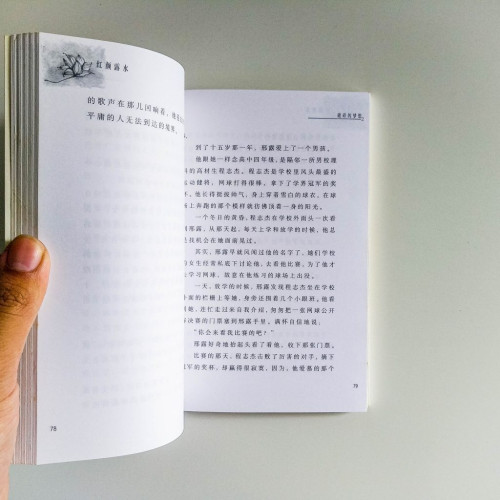 红颜露水
的歌声在那儿回响着，
平庸的人无法到达的境界。
78
到了十五岁那一年，邢露爱上了一个男孩。
他跟她一样念高中四年级，是隔邻一所男校理
的高材生程志杰。程志杰是学校里风头最盛的
运动健将，网球打得很棒，拿下了学界冠军的奖
他长得挺拔帅气，身上穿着雪白的球衣，在球
场上奔跑的那个模样就仿佛顶着一身的阳光。
一个冬日的黄昏，程志杰在学校外面头一次看
邢露，从那天起，每天上学和放学的时候，他总
找机会在她面前晃过。
其实，邢露早就风闻过他的名字了，她们学校
女生经常私底下讨论他，去看他比赛，为了他才
学习网球，故意在他练习的球场上出没。
一天，放学的时候，邢露发现程志杰坐在学校
外面的栏栅上等她，身旁还围着几个小跟班，他看
到她，连忙走过来自我介绍，匆匆把一张网球公开
决赛的门票塞到邢露手里，满怀自信地说：
“你会来看我比赛的吧？”
邢露好奇地抬起头看了看他，收下那张门票。
比赛的那天，程志杰击败了厉害的对手，摘下
冠军的奖杯，却赢得很寂寞，因为，他爱慕的那个
79